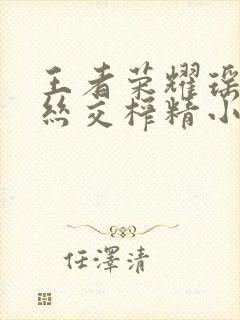 王者荣耀瑶
丝交榨精小
任澤清